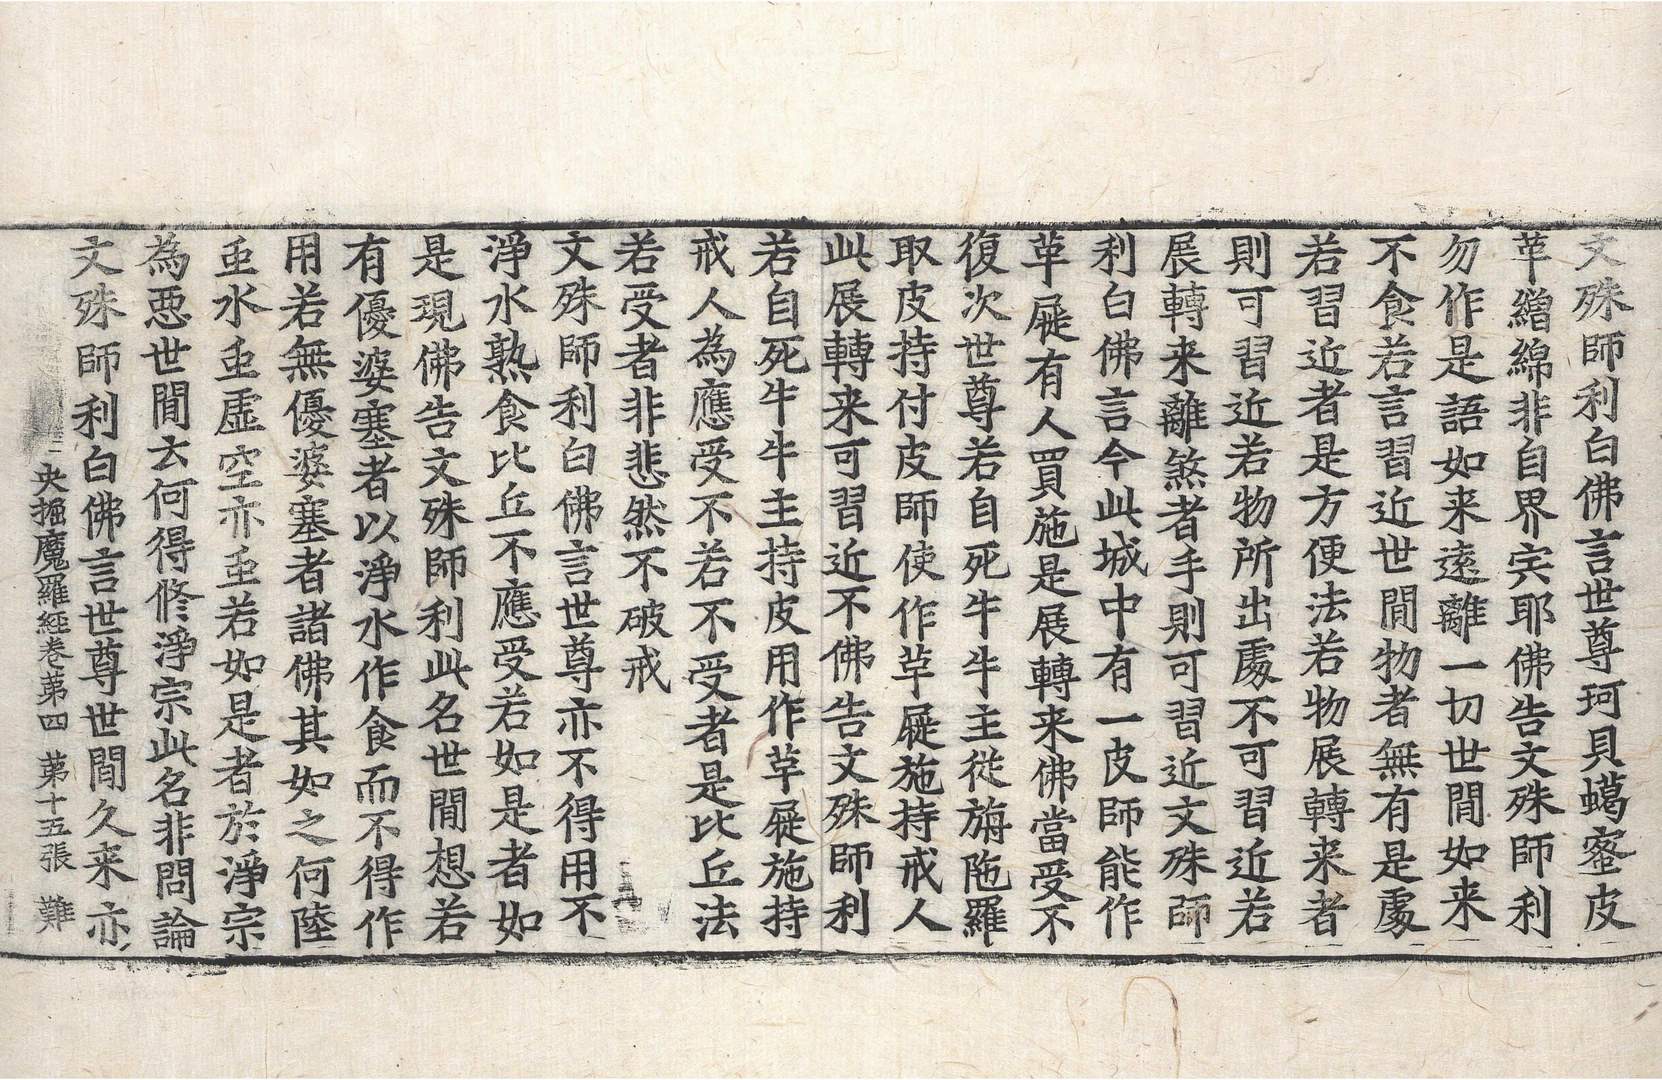 文殊師利白佛言世尊珂貝蠟蜜皮
革繒綿非自界宍耶佛告文殊師利
勿作是語如来遠離一切世間如来
不食若言習近世間物者無有是處
若習近者是方便法若物展轉来者
則可習近若物所出處不可習近若
展轉来離煞者手則可習近文殊師
利白佛言今此城中有一皮師能作
革屣有人買施是展轉来佛當受不
復次世尊若自死牛牛主從旃陁羅
取皮持付皮師使作革屣施持戒人
此展轉来可習近不佛告文殊師利
若自死牛牛主持皮用作革屣施持
戒人為應受不若不受者是比丘法
若受者非悲然不破戒
文殊師利白佛言世尊亦不得用不
淨水熟食比丘不應受若如是者如
是現佛告文殊師利此名世間想若
有優婆塞者以淨水作食而不得作
用若無優婆塞者諸佛其如之何陸
䖝水䖝虛空亦䖝若如是者於淨宗
為惡世間云何得修淨宗此名非問論
央掘魔羅経卷第四 第十五張 難
文殊師利白佛言世尊世間久来亦